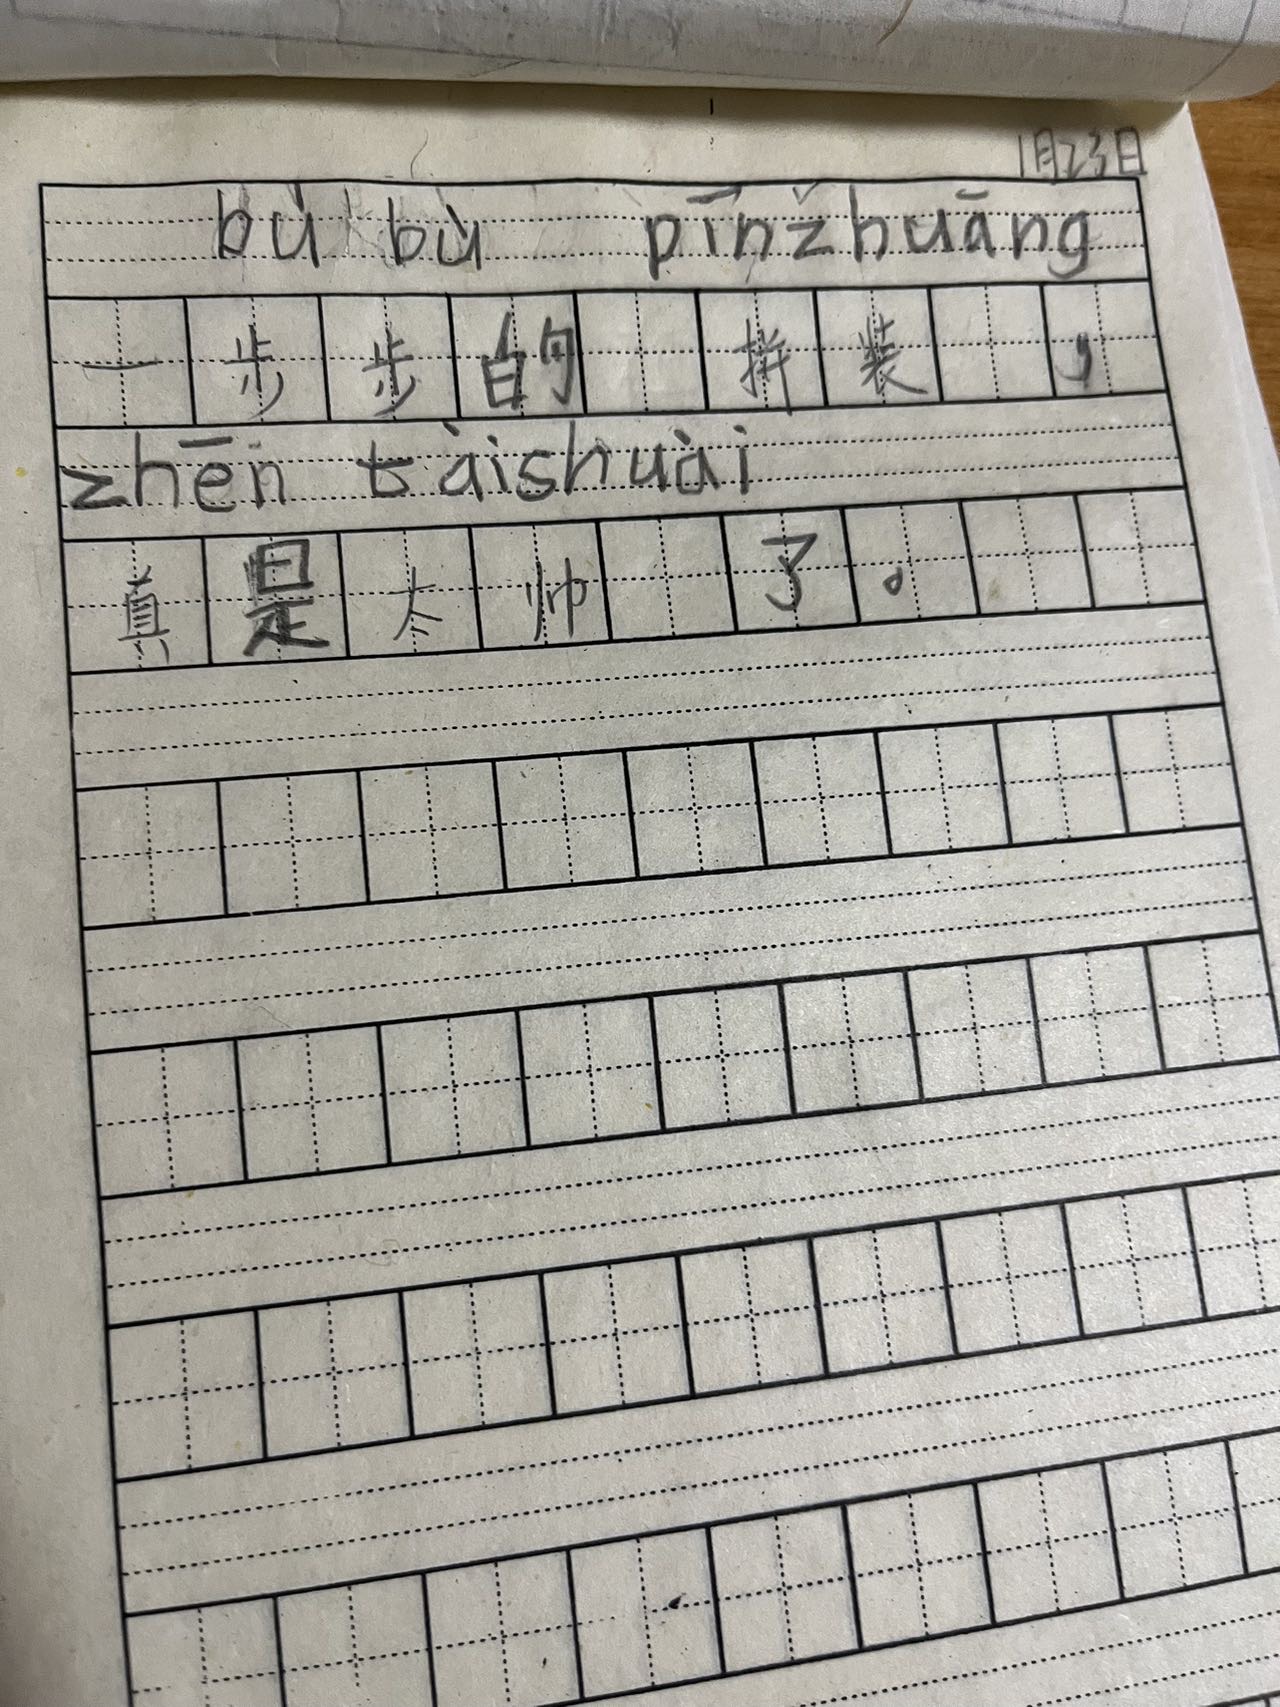 1月23日
bù bù pīnzhuāng
一步步的 拼装 ，
zhēn tàishuài
真是太帅 了。